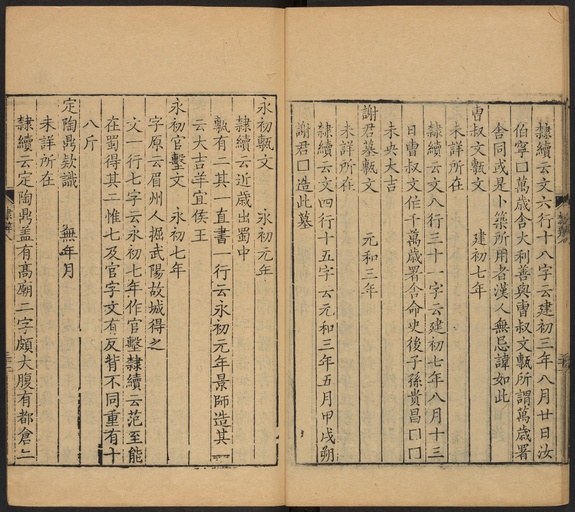 隸續云文六行十八字云建初三年八月廿日汝
伯寧口萬歲舍大利善與曹叔文甎所謂萬歲署
舍同或是卜築所用者漢人無忌諱如此
曹叔文甎文　建初七年
未詳所在
隸續云文八行三十一字云建初七年八月十三
日曹叔文作千萬歲署舍命史後子孫貴昌口口
未央大吉
謝君墓甎文　元和三年
未詳所在
隸續云文四行十五字云元和三年五月甲戌朔
謝君口造此墓
永初甎文　永初元年
隸續云近歲出蜀中
甎有二其一直書一行云永初元年景師造其一
云大吉羊宜侯王
永初官墼文　永初七年
字原云眉州人掘武陽故城得之
文一行七字云永初七年作官墼隸續云范至能
在蜀得其二惟七及官字文有反背不同重有十
八斤
定陶鼎款識　無年月
未詳所在
隸續云定陶鼎蓋有高廟二字頗大腹有都倉二